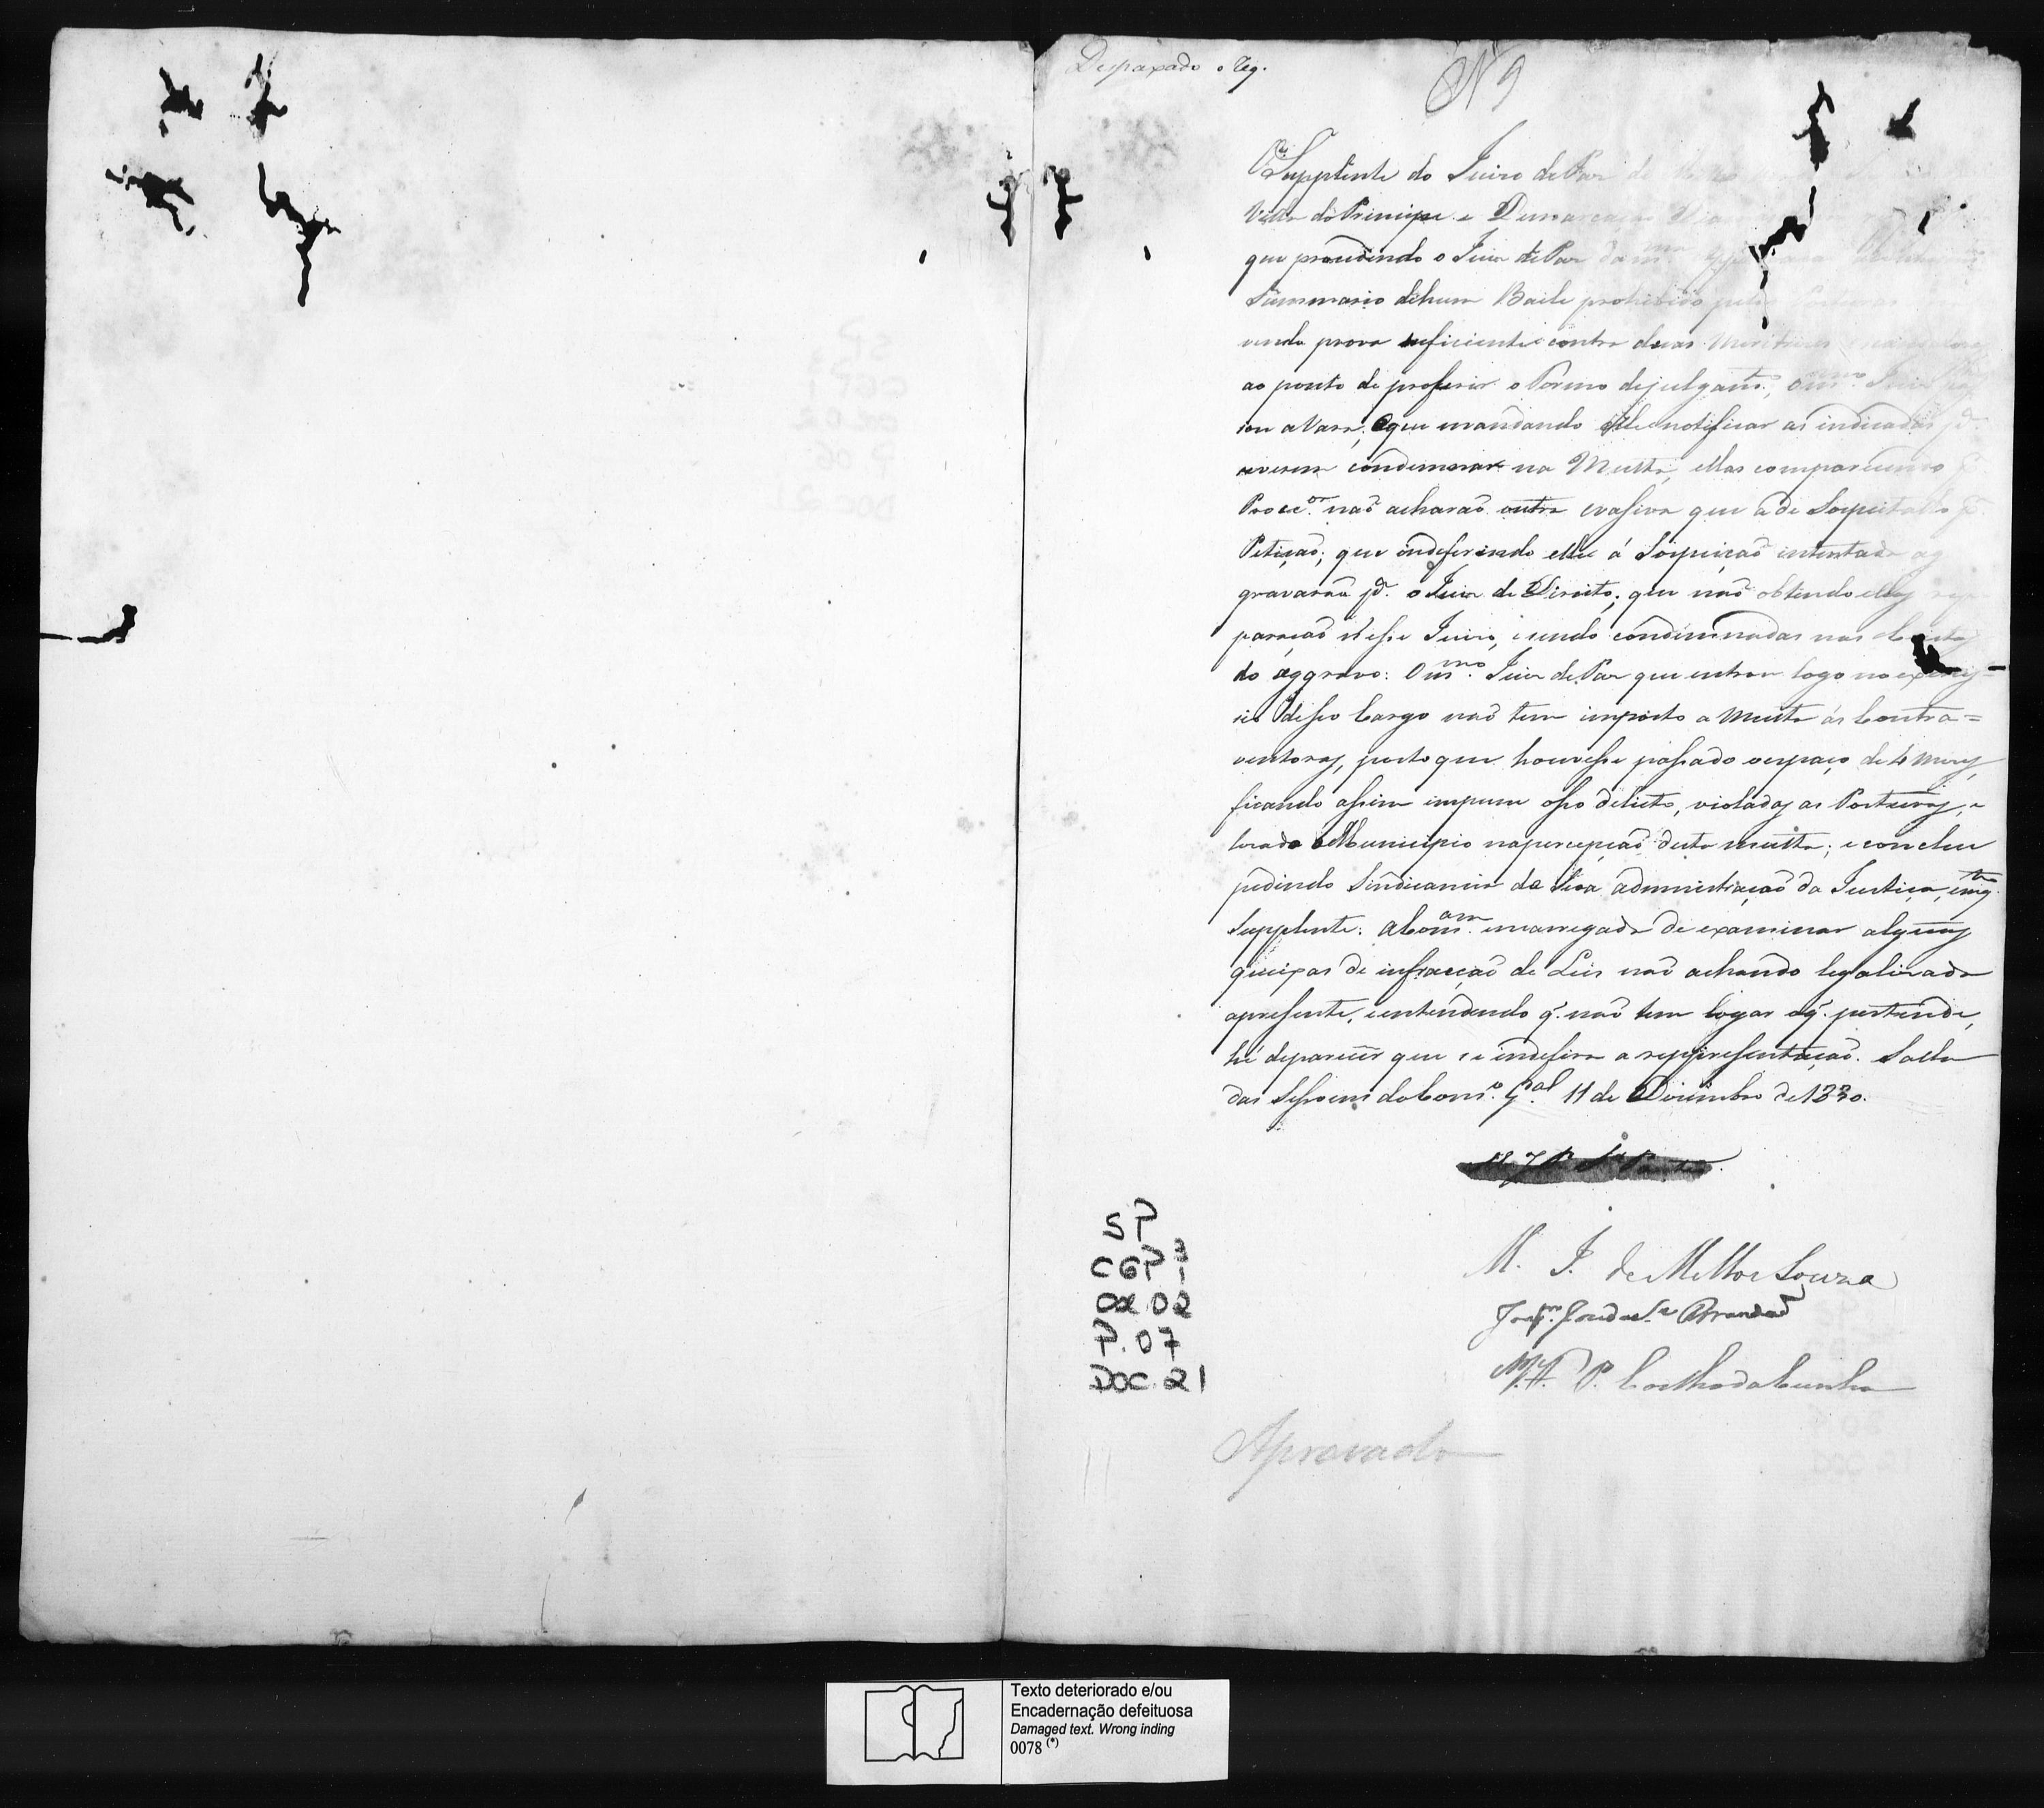 Despaxado o Reg.
N 9
O Supplente do Juizo de Paz de
Villa do Principe e Demarcação
que procedendo o Juiz de Paz da
Summario de hum Baile prohibido pelas Posturas
vendo prova suficiente contra duas
ao ponto de proferir o Termo de julgam.to, o m.mo Juiz
sou a Vara; e que mandando elle notificar as indicadas p.a
se verem condemnar na Multa, ellas comparecendo p.
Procc.or não acharão outra evasiva que a de Sospeitallo p.
Petição; que indeferindo elle á Sospeição intentada ag
gravarão p.a o Juiz de Direito; que não obtendo ellas re
paração n'esse Juizo, e sendo condemnadas nas Custas
do aggravo: O m.mo Juiz de Paz que entrou logo no exerci=
cio desse Cargo não tem imposto a Multa ás Contra=
ventoras, posto que houvesse passado o espaço de 4 mezes,
ficando assim impune esse delicto, violadas as Posturas, e
lezado o Municipio na percepção desta multa; e conclue
pedindo Sindicancia da Sua administração da Justiça, emq.to
Supplente. A Com.am encarregada de examinar algumas
queixas de infracção de Leis não achando legalizada
a presente, e entendendo q. não tem logar o q. pertende,
hé de parecer que se indefira a reppresentação. Salla
das Sessoens do Cons.o G.al 11 de Dizembro de 1830.
M. J. de Mello e Souza
Joaq.m José da S.a Brandão
M. A. P. Coelho da Cunha
SP
CGP 1
CX 02
P. 07
DOC. 21
Aprovado
Texto deteriorado e/ou
Encadernação defeituosa
Damaged text. Wrong inding
0078 (*)